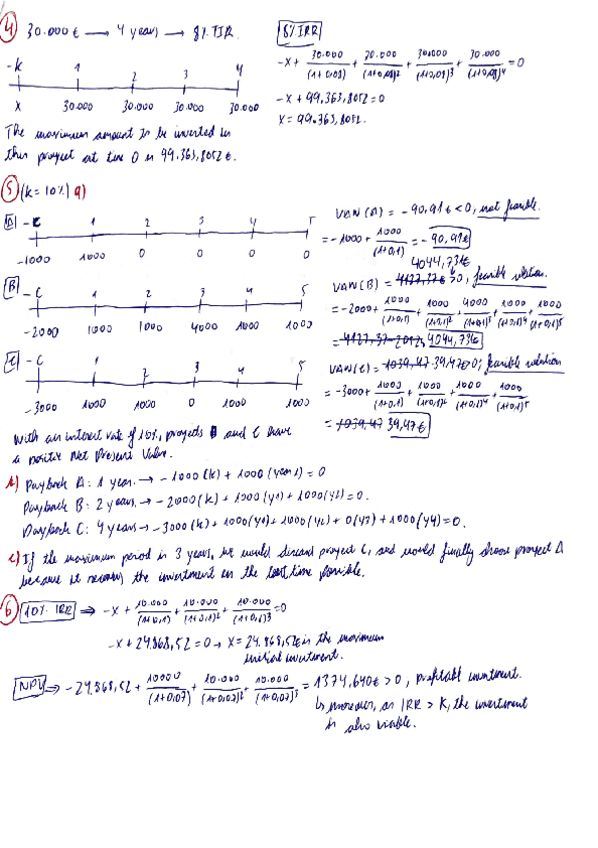 4 30.000 € → 4 years → 8% TIR.
8% IRR
-X + 30.000/(1+0,08) + 30.000/(1+0,08)² + 30.000/(1+0,08)³ + 30.000/(1+0,08)⁴ = 0
-K 1 2 3 4
X 30.000 30.000 30.000 30.000
-X + 99.363,8052 = 0
X = 99.363,8052.
The maximum amount to be inverted in
this proyect at time 0 is 99.363,8052 €.
5 (k = 10%) a)
A -C 1 2 3 4 5
-1000 1000 0 0 0 0
VAN (A) = -90,91€ < 0, not feasible.
= -1000 + 1000/(1+0,1) = -90,91€
B -C 1 2 3 4 5
-2000 1000 1000 4000 1000 1000
4044,73€
VAN (B) = > 0, feasible solution.
= -2000 + 1000/(1+0,1) + 1000/(1+0,1)² + 4000/(1+0,1)³ + 1000/(1+0,1)⁴ + 1000/(1+0,1)⁵
= 4044,73€
C -C 1 2 3 4 5
-3000 1000 1000 0 1000 1000
VAN (C) = 39,47€ > 0, feasible solution
= -3000 + 1000/(1+0,1) + 1000/(1+0,1)² + 1000/(1+0,1)⁴ + 1000/(1+0,1)⁵
= 39,47€
With an interest rate of 10%, proyects B and C have
a positive Net Present Value.
b) Payback A: 1 year. → -1000 (k) + 1000 (year 1) = 0
Payback B: 2 years. → -2000 (k) + 1000 (y1) + 1000 (y2) = 0.
Payback C: 4 years → -3000 (k) + 1000 (y1) + 1000 (y2) + 0 (y3) + 1000 (y4) = 0.
c) If the maximum period is 3 years, we would discard proyect C, and would finally choose proyect A
because it recovers the investment in the least time possible.
6 10% IRR ⇒ -X + 10.000/(1+0,1) + 10.000/(1+0,1)² + 10.000/(1+0,1)³ = 0
-X + 24.868,52 = 0 → X = 24.868,52€ is the maximum
initial investment.
NPV ⇒ -24.868,52 + 10000/(1+0,07) + 10.000/(1+0,07)² + 10.000/(1+0,07)³ = 1374,640€ > 0, profitable investment.
↳ moreover, as IRR > K, the investment
is also viable.